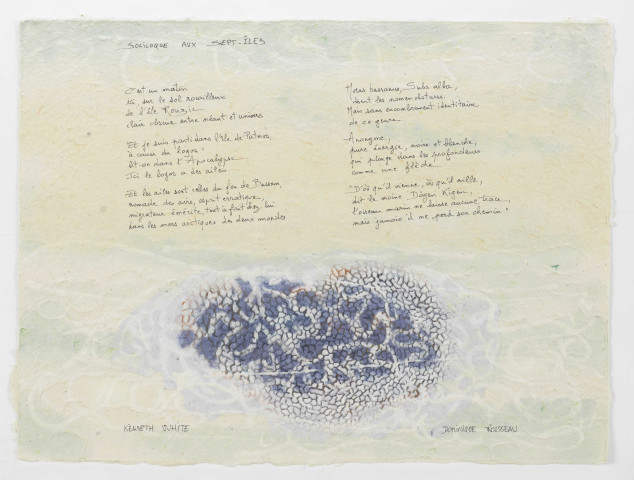 SOLILOQUE AUX SEPT-ÎLES
C'est un matin
ici, sur le sol rocailleux
de l'île Rouzic
clair obscur entre néant et univers
"Et je suis parti dans l'île de Patmos,
à cause du logos"
dit-on dans l'Apocalypse
Ici le logos a des ailes
Et les ailes sont celles du fou de Bassan,
nomade des airs, esprit erratique,
migrateur émérite, tout à fait chez lui
dans les mers arctiques des deux mondes
Morus bassanus, Sula alba,
disent les nomenclatures.
Mais sans encombrement identitaire
de ce genre
Anonyme,
pure énergie, noire et blanche,
qui plonge dans les profondeurs
comme une flèche
"D'où qu'il vienne, où qu'il aille,
dit le moine Dôgen Kigen,
l'oiseau marin ne laisse aucune trace,
mais jamais il ne perd son chemin"
KENNETH WHITE
DOMINIQUE ROUSSEAU